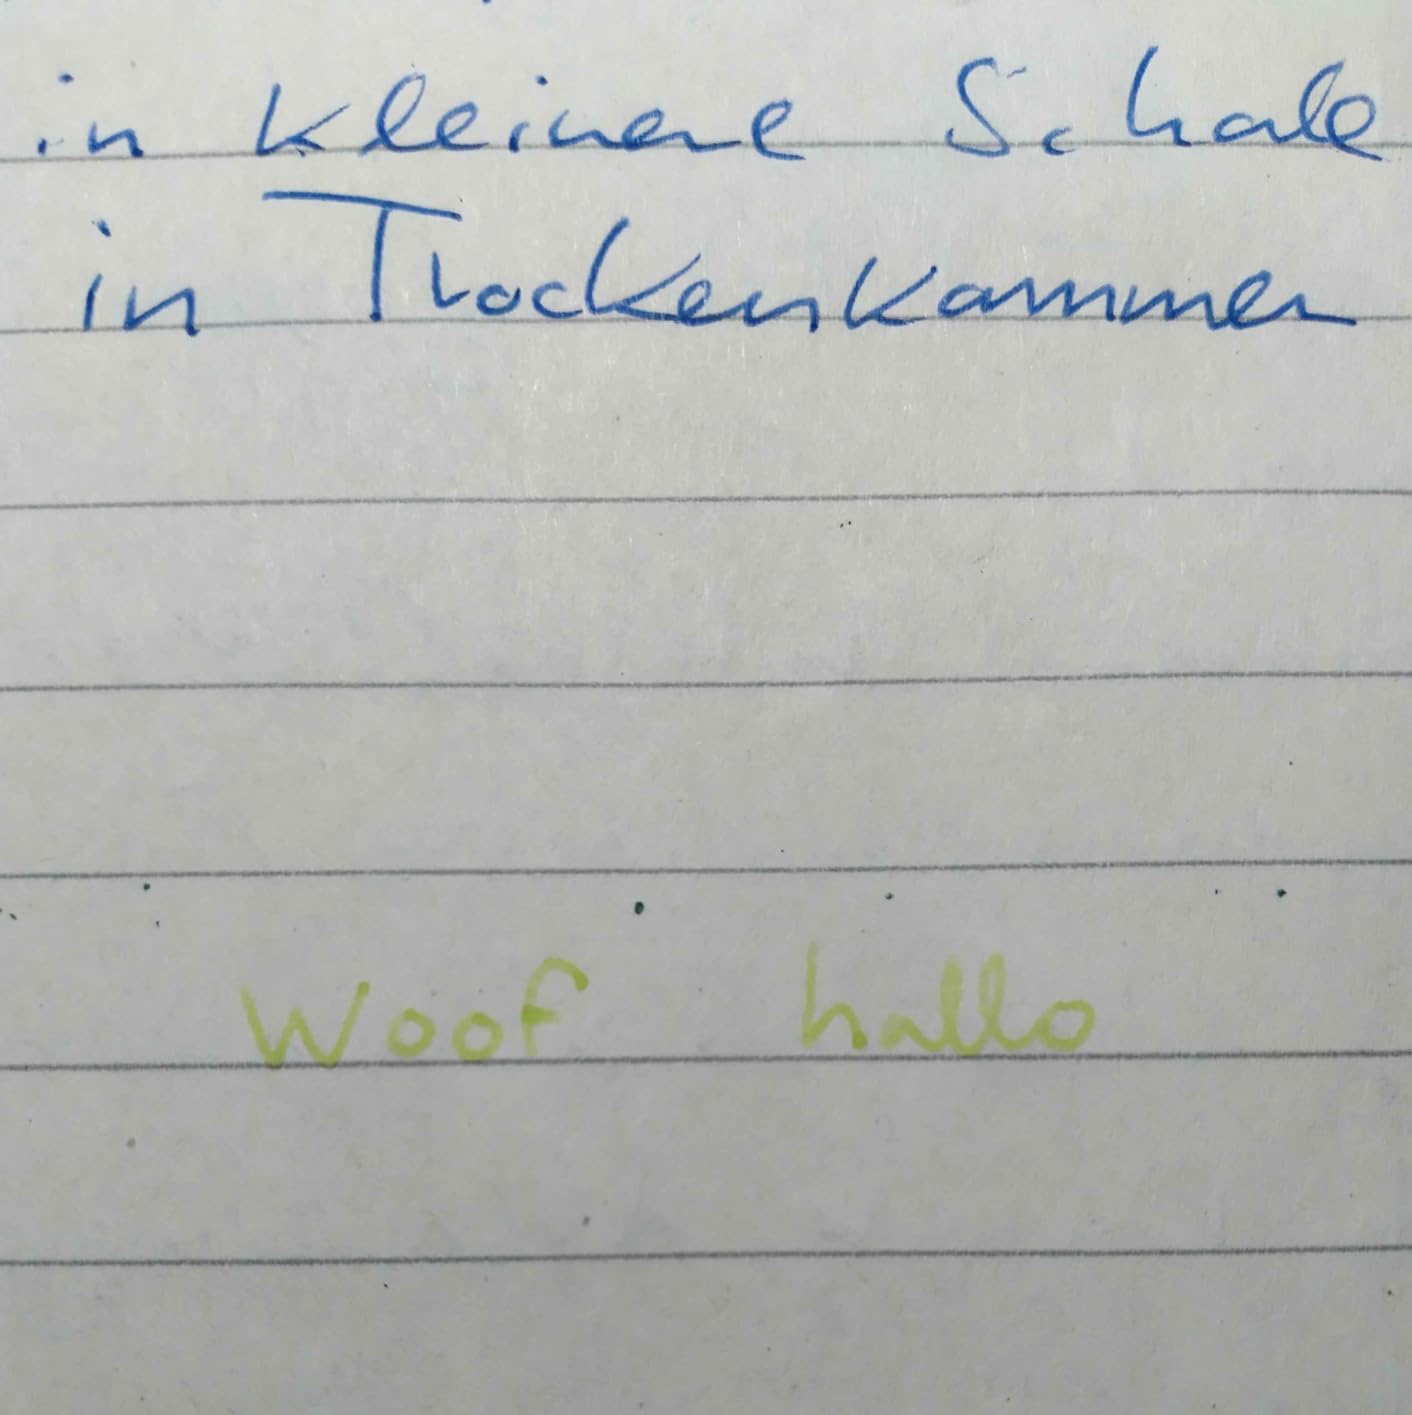 in kleinere Schale
in Trockenkammer
Woof hallo